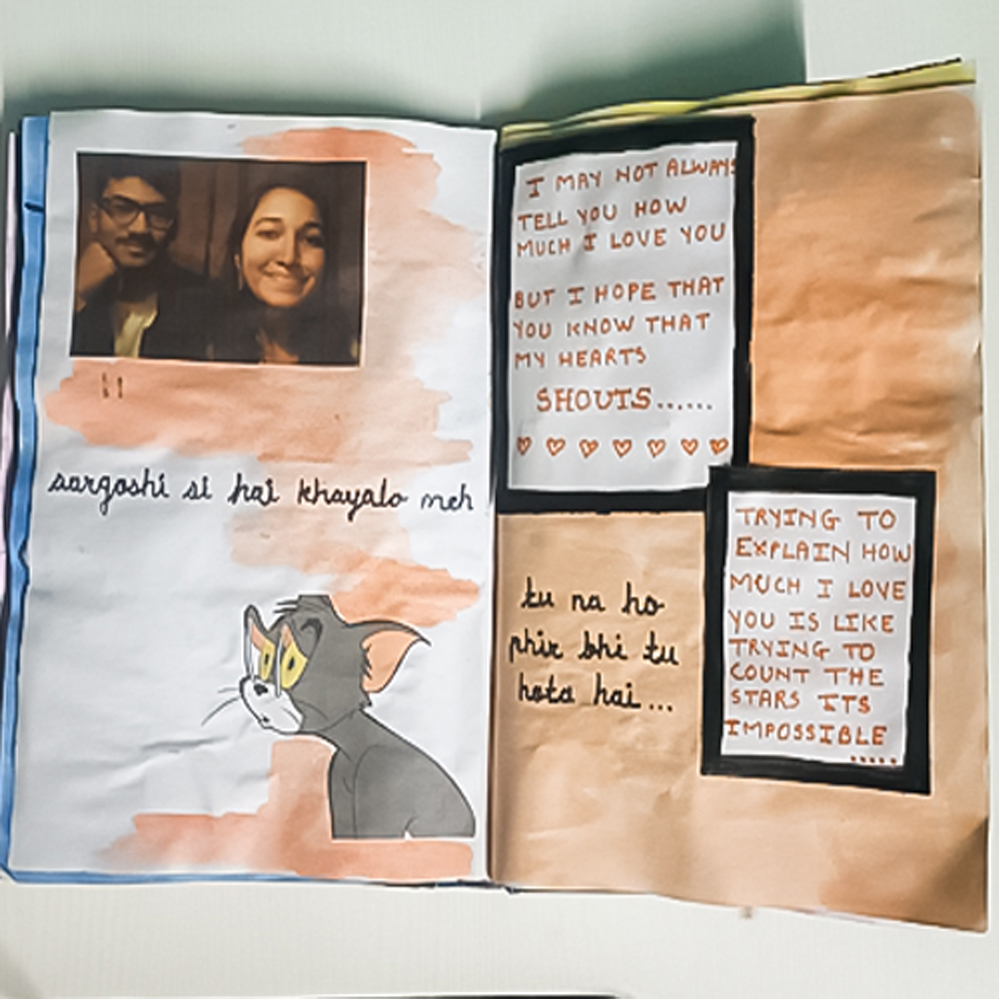 sargoshi si hai khayalo meh
I MAY NOT ALWAYS
TELL YOU HOW
MUCH I LOVE YOU
BUT I HOPE THAT
YOU KNOW THAT
MY HEARTS
SHOUTS......
tu na ho
phir bhi tu
hota hai...
TRYING TO
EXPLAIN HOW
MUCH I LOVE
YOU IS LIKE
TRYING TO
COUNT THE
STARS ITS
IMPOSSIBLE
.....